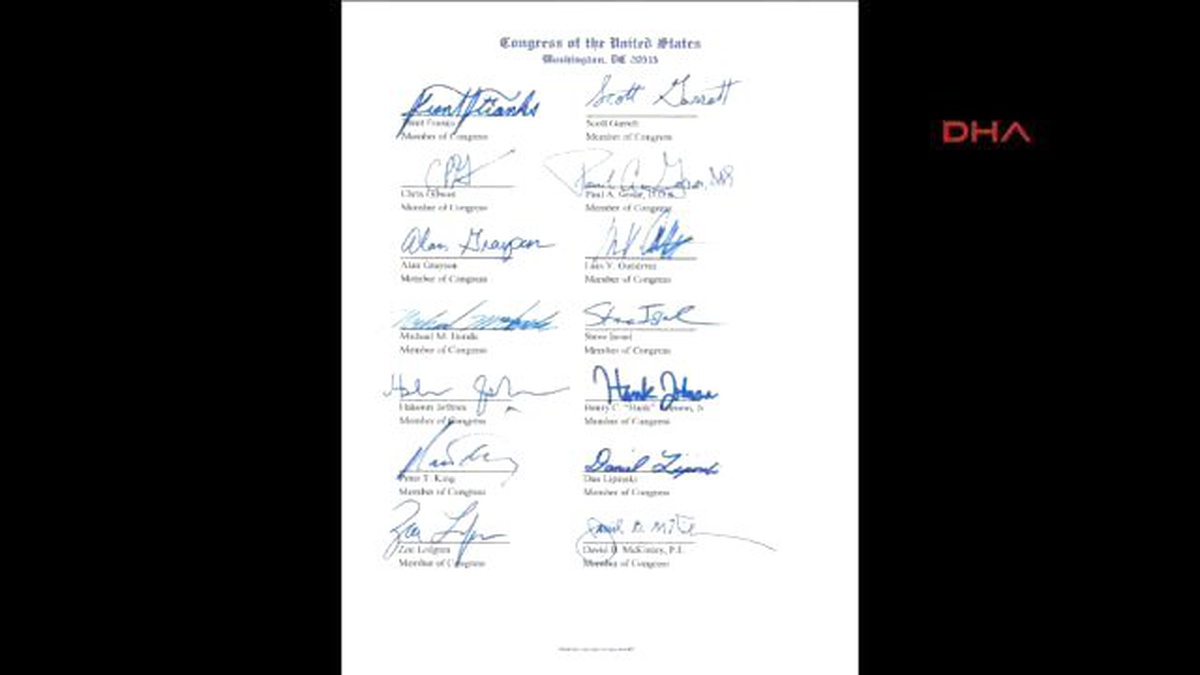 Congress of the United States
Washington, DC 20515
DHA
Trent Franks
Member of Congress
Scott Garrett
Scott Garrett
Member of Congress
Chris Gibson
Member of Congress
Paul A. Gosar, D.D.S.
Member of Congress
Alan Grayson
Alan Grayson
Member of Congress
Luis V. Gutiérrez
Member of Congress
Michael M. Honda
Member of Congress
Steve Israel
Steve Israel
Member of Congress
Hakeem Jeffries
Member of Congress
Hank Johnson
Henry C. "Hank" Johnson, Jr
Member of Congress
Peter T. King
Member of Congress
Daniel Lipinski
Dan Lipinski
Member of Congress
Zoe Lofgren
Zoe Lofgren
Member of Congress
David B. McKinley
David B. McKinley, P.E.
Member of Congress